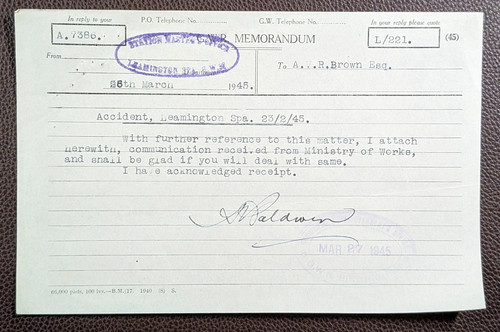 In reply to your P.O. Telephone No. G.W. Telephone No. In your reply please quote
A.7386. MEMORANDUM L/221. (45)
STATION MASTER'S OFFICE
LEAMINGTON SPA. G.W.R.
From To A.V.R.Brown Esq.
26th March 1945.
Accident, Leamington Spa. 23/2/45.
With further reference to this matter, I attach
herewith, communication received from Ministry of Works,
and shall be glad if you will deal with same.
I have acknowledged receipt.
Baldwin
MAR 27 1945